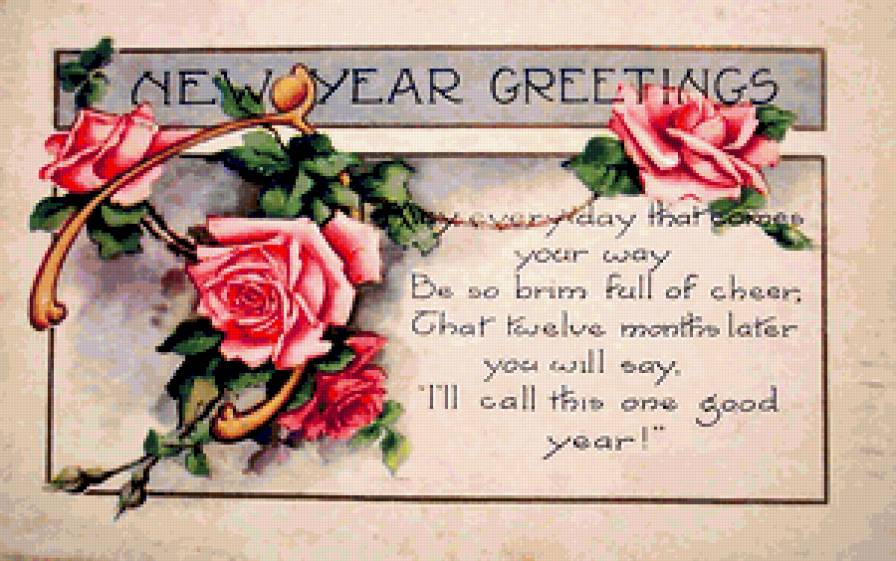 NEW YEAR GREETINGS
May every day that comes
your way
Be so brim full of cheer,
That twelve months later
you will say,
"I'll call this one good
year!"